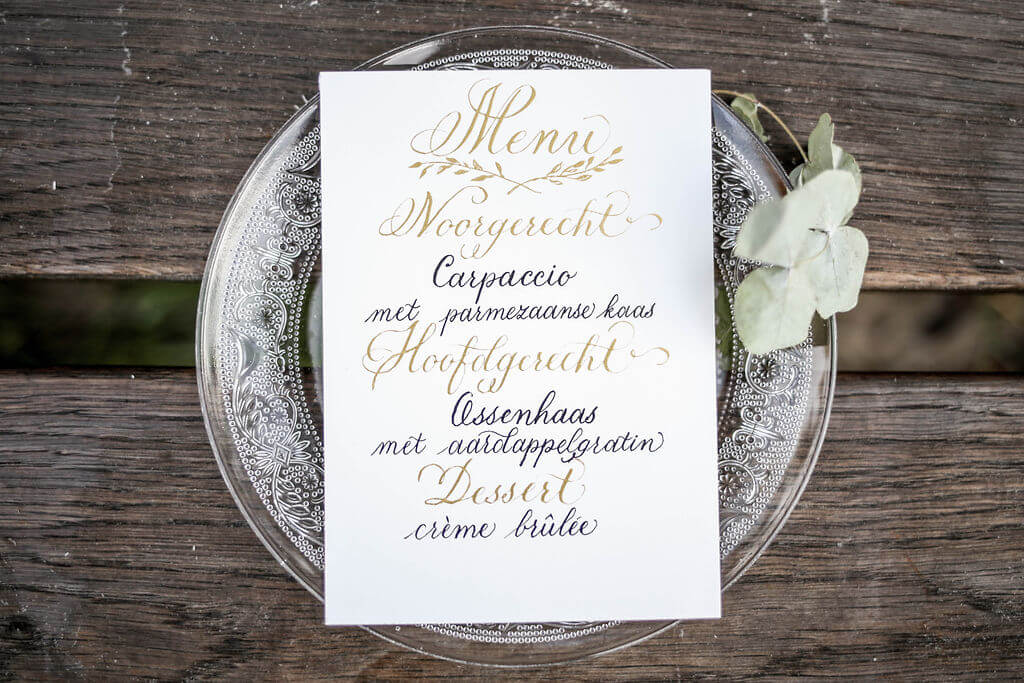 Menu
Voorgerecht
Carpaccio
met parmezaanse kaas
Hoofdgerecht
Ossenhaas
met aardappelgratin
Dessert
crème brûlée